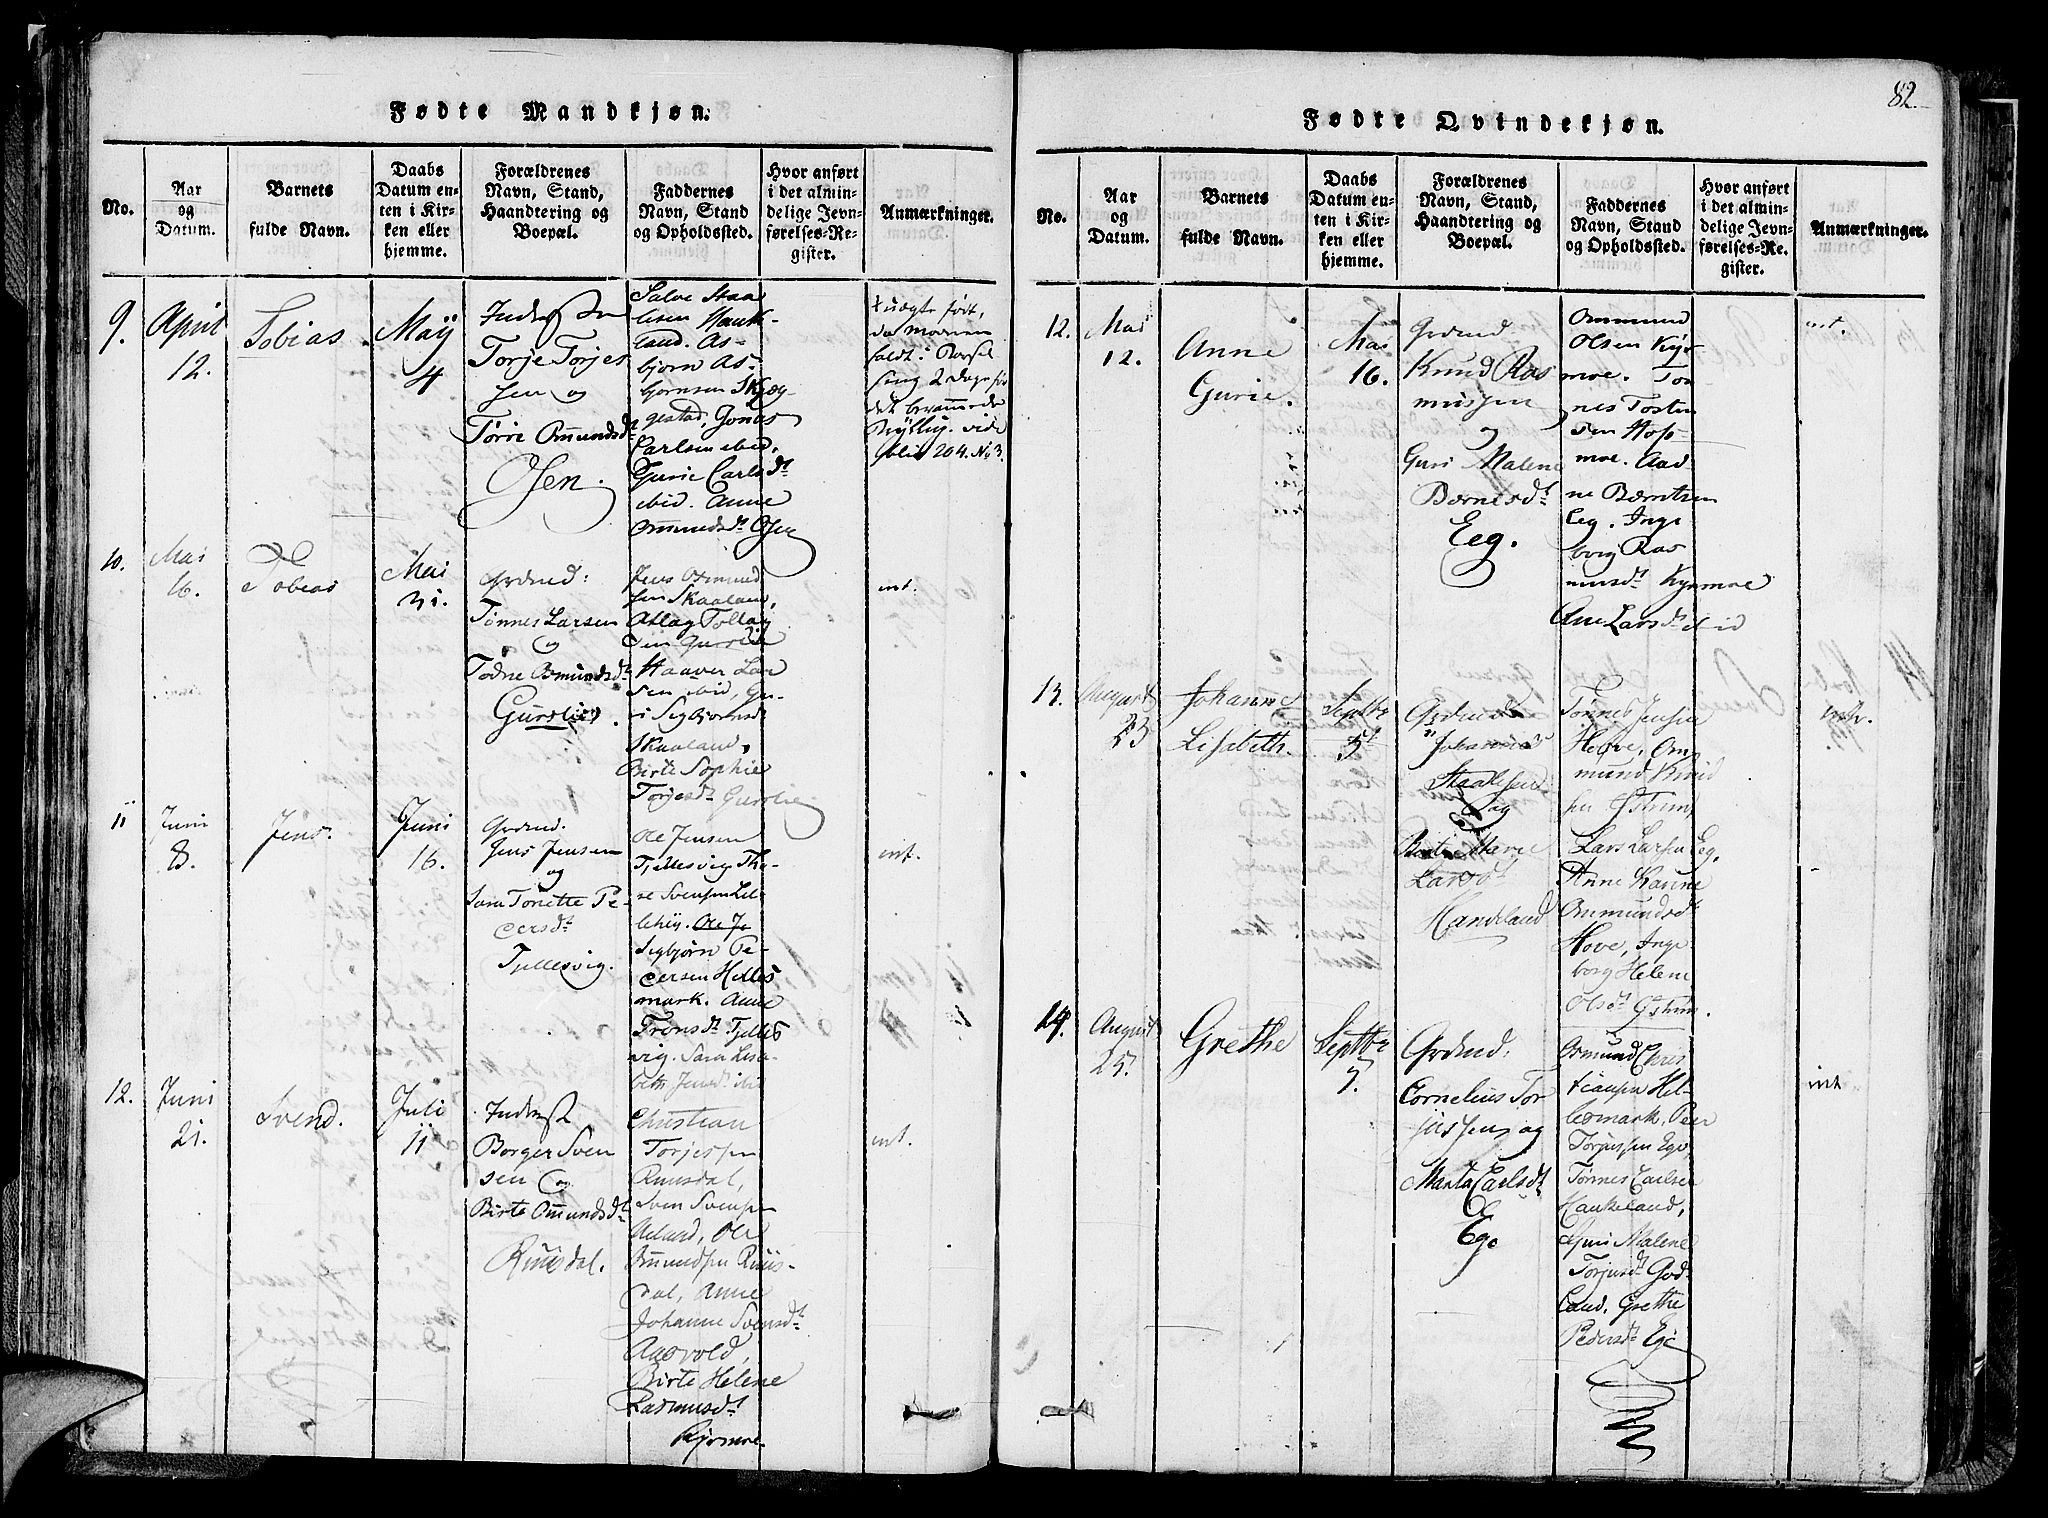 82
Fødte Mandkjøn.
No.
Aar
og
Datum.
Barnets
fulde Navn.
Daabs
Datum en-
ten i Kir-
ken eller
hjemme.
Forældrenes
Navn, Stand,
Haandtering og
Boepæl.
Faddernes
Navn, Stand
og Opholdssted.
Hvor anført
i det almin-
delige Jevn-
førelses-Re-
gister.
Anmærkninger.
9.
April
12.
Tobias
Maÿ
4
Torje Torjes
sen og
Tørre Omundsdt
Osen.
Salve Staa
lesen Hauk-
land. As-
bjørn As-
bjørnsen Skjeg-
gestad, Jonas
Carlsen ibid,
Gurie Carlsdt
ibid. Anne
Ommundsdt Osen
uægte født,
da moderen
faldt i Barsel
seng 2 Dage før
204. No 3.
10.
Mai
16.
Tobias
Mai
31.
Grdmd:
Tønnes Larsen
og
Todne Osmundsdt
Gursliȩ.
Jens Osmund
sen Skaaland,
Atlag Tollag
sen Gurslie
Haaver Lar
sen ibid, Gu-
ri Segbjørnsdt
Skaaland,
Birte Sophie
Torjesdt Gurslie
int.
11
Juni
8.
Jens.
Juni
16.
Grdmd.
Jens Jensen
og
Sara Tonette Pe-
dersdt
Tjellesvig.
Ole Jensen
Tjellesvig Tha-
re Svensen Lil-
lehÿ. Ole Je
Segbjørn Pe-
dersen Helles
mark. Anne
Tronsdt Tjelles
vig. Sara Lisa-
beth Jensdt ibi
int.
12.
Juni
21.
Svend.
Juli
11
Inderst
Borger Sven
sen og
Birte Omundsdt
Ruusdal.
Christian
Torjessen
Ruusdal,
Sven Svensen
Aalund, Ole
Ommundsen Ruus-
dal, Anne
Johanne Svensdt
Aasvold,
Birte Helene
Rasmusdt
Kjørmoe.
int.
Fødte Qvindekjøn.
No.
Aar
og
Datum.
Barnets
fulde Navn.
Daabs
Datum en-
ten i Kir-
ken eller
hjemme.
Forældrenes
Navn, Stand,
Haandtering og
Boepæl.
Faddernes
Navn, Stand
og Opholdssted.
Hvor anført
i det almin-
delige Jevn-
førelses-Re-
gister.
Anmærkninger.
12.
Mai
12.
Anne
Gurie.
Mai
16.
Grdmd
Knud Ras
mussen
og
Guri Malene
Bornesdt
Eeg.
Ommund
Olsen Kÿr
moe. Tøn
nes Tosten
sen Hof-
moe. Aad
ne Berntsen
Eeg. Inge
borg Ras
musdt Kyrmoe
Ane Larsdt ibid
int.
13.
August
23
Johanne
Lisabeth.
Septbr
5t
Grdmd
Johannes
Staalesen
og
Berte Marie
Larsdt
Haukland
Tønnes Jensen
Hove, Om
mund Knud
sen Østrem,
Lars Larsen Eeg,
Anne Karine
Ommundsdt
Hove, Inge
borg Helene
Olsdt Østrem.
int.
14.
August
25.
Grethe
Septbr
5.
Grdmd:
Cornelius Tor
jussen og
Marta Carlsdt
Ege
Osmund Chris
tiansen Hel-
lesmark. Peer
Torjussen Ege
Tønnes Carlsen
Haukeland,
Guri Malene
Torjusdt God-
land. Grethe
Pedersdt Ege
int